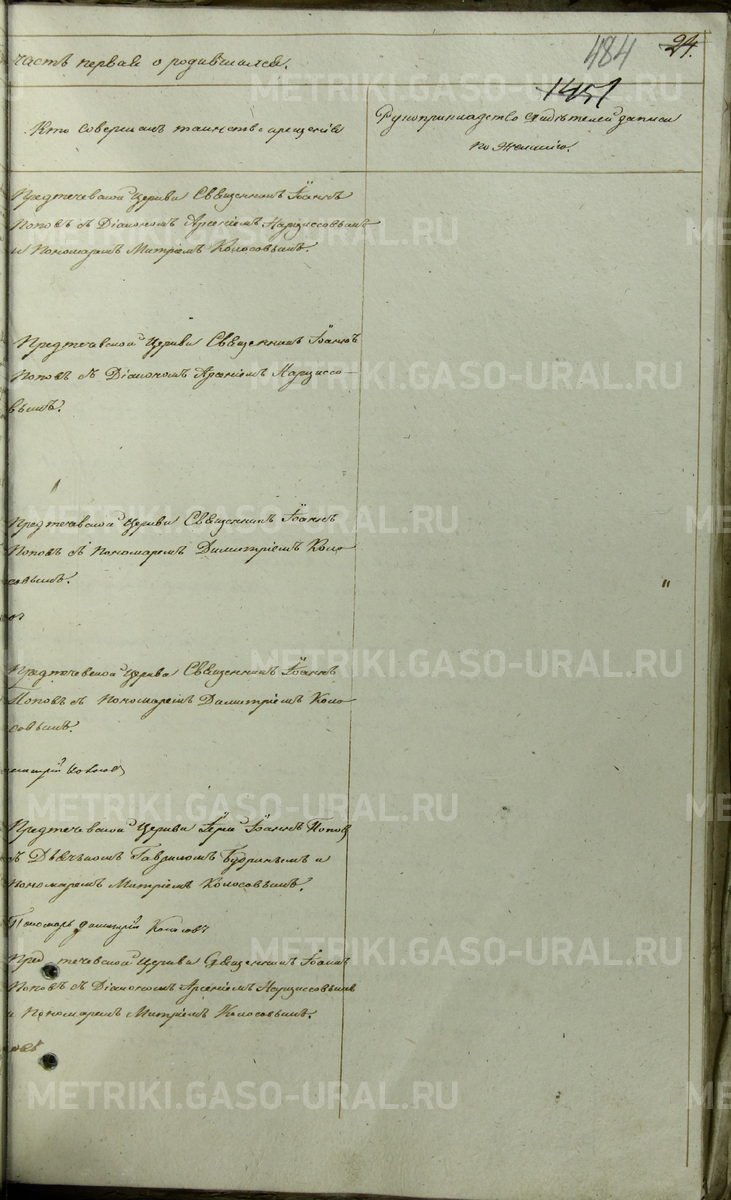 484
24.
1451
часть первая о родившихся.
Кто совершалъ таинство крещенія
Рукоприкладство свидѣтелей записи
по желанію.
Предтечевской Церкви Священникъ Іоаннъ
Поповъ съ Діакономъ Арсеніемъ Нарциссовымъ
и Пономаремъ Митріемъ Колосовымъ.
Предтечевской Церкви Священникъ Іоаннъ
Поповъ съ Діакономъ Нарциссо-
вымъ.
Предтечевской Церкви Священникъ Іоаннъ
Поповъ съ Пономаремъ Димитріемъ Коло
совымъ.
Предтечевской Церкви Священникъ Іоаннъ
Поповъ съ Пономаремъ Димитріемъ Коло
совымъ.
Предтечевской Церкви Іоаннъ Поповъ
съ Гавриломъ и
Пономаремъ Митріемъ Колосовымъ.
Пономарь Колосовъ
Предтечевской Церкви Священникъ Іоаннъ
Поповъ съ Діакономъ Арсеніемъ Нарциссовымъ
и Пономаремъ Митріемъ Колосовымъ.
METRIKI.GASO-URAL.RU